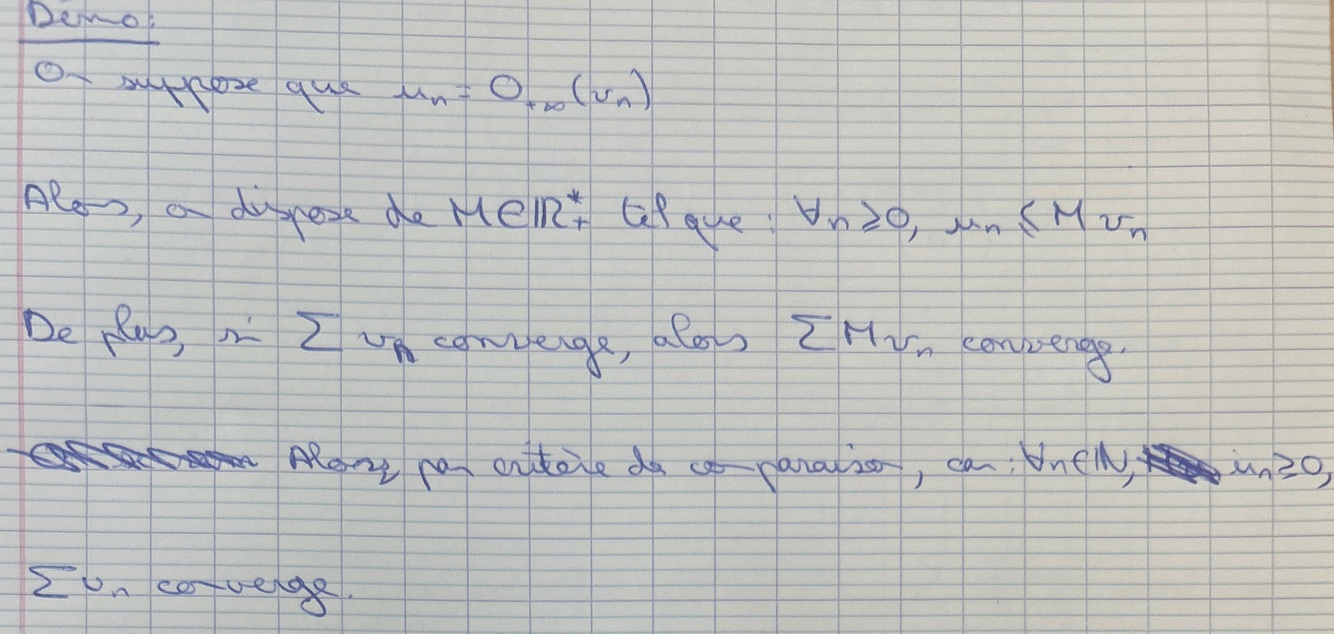 Démo:
On suppose que uₙ = O₊∞(vₙ)
Alors, on dispose de M∈ℝ₊* tel que : ∀n≥0, uₙ ≤ M vₙ
De plus, si Σ vₙ converge, alors Σ M vₙ converge.
Alors, par critère de comparaison, car : ∀n∈ℕ, uₙ≥0,
Σ uₙ converge.